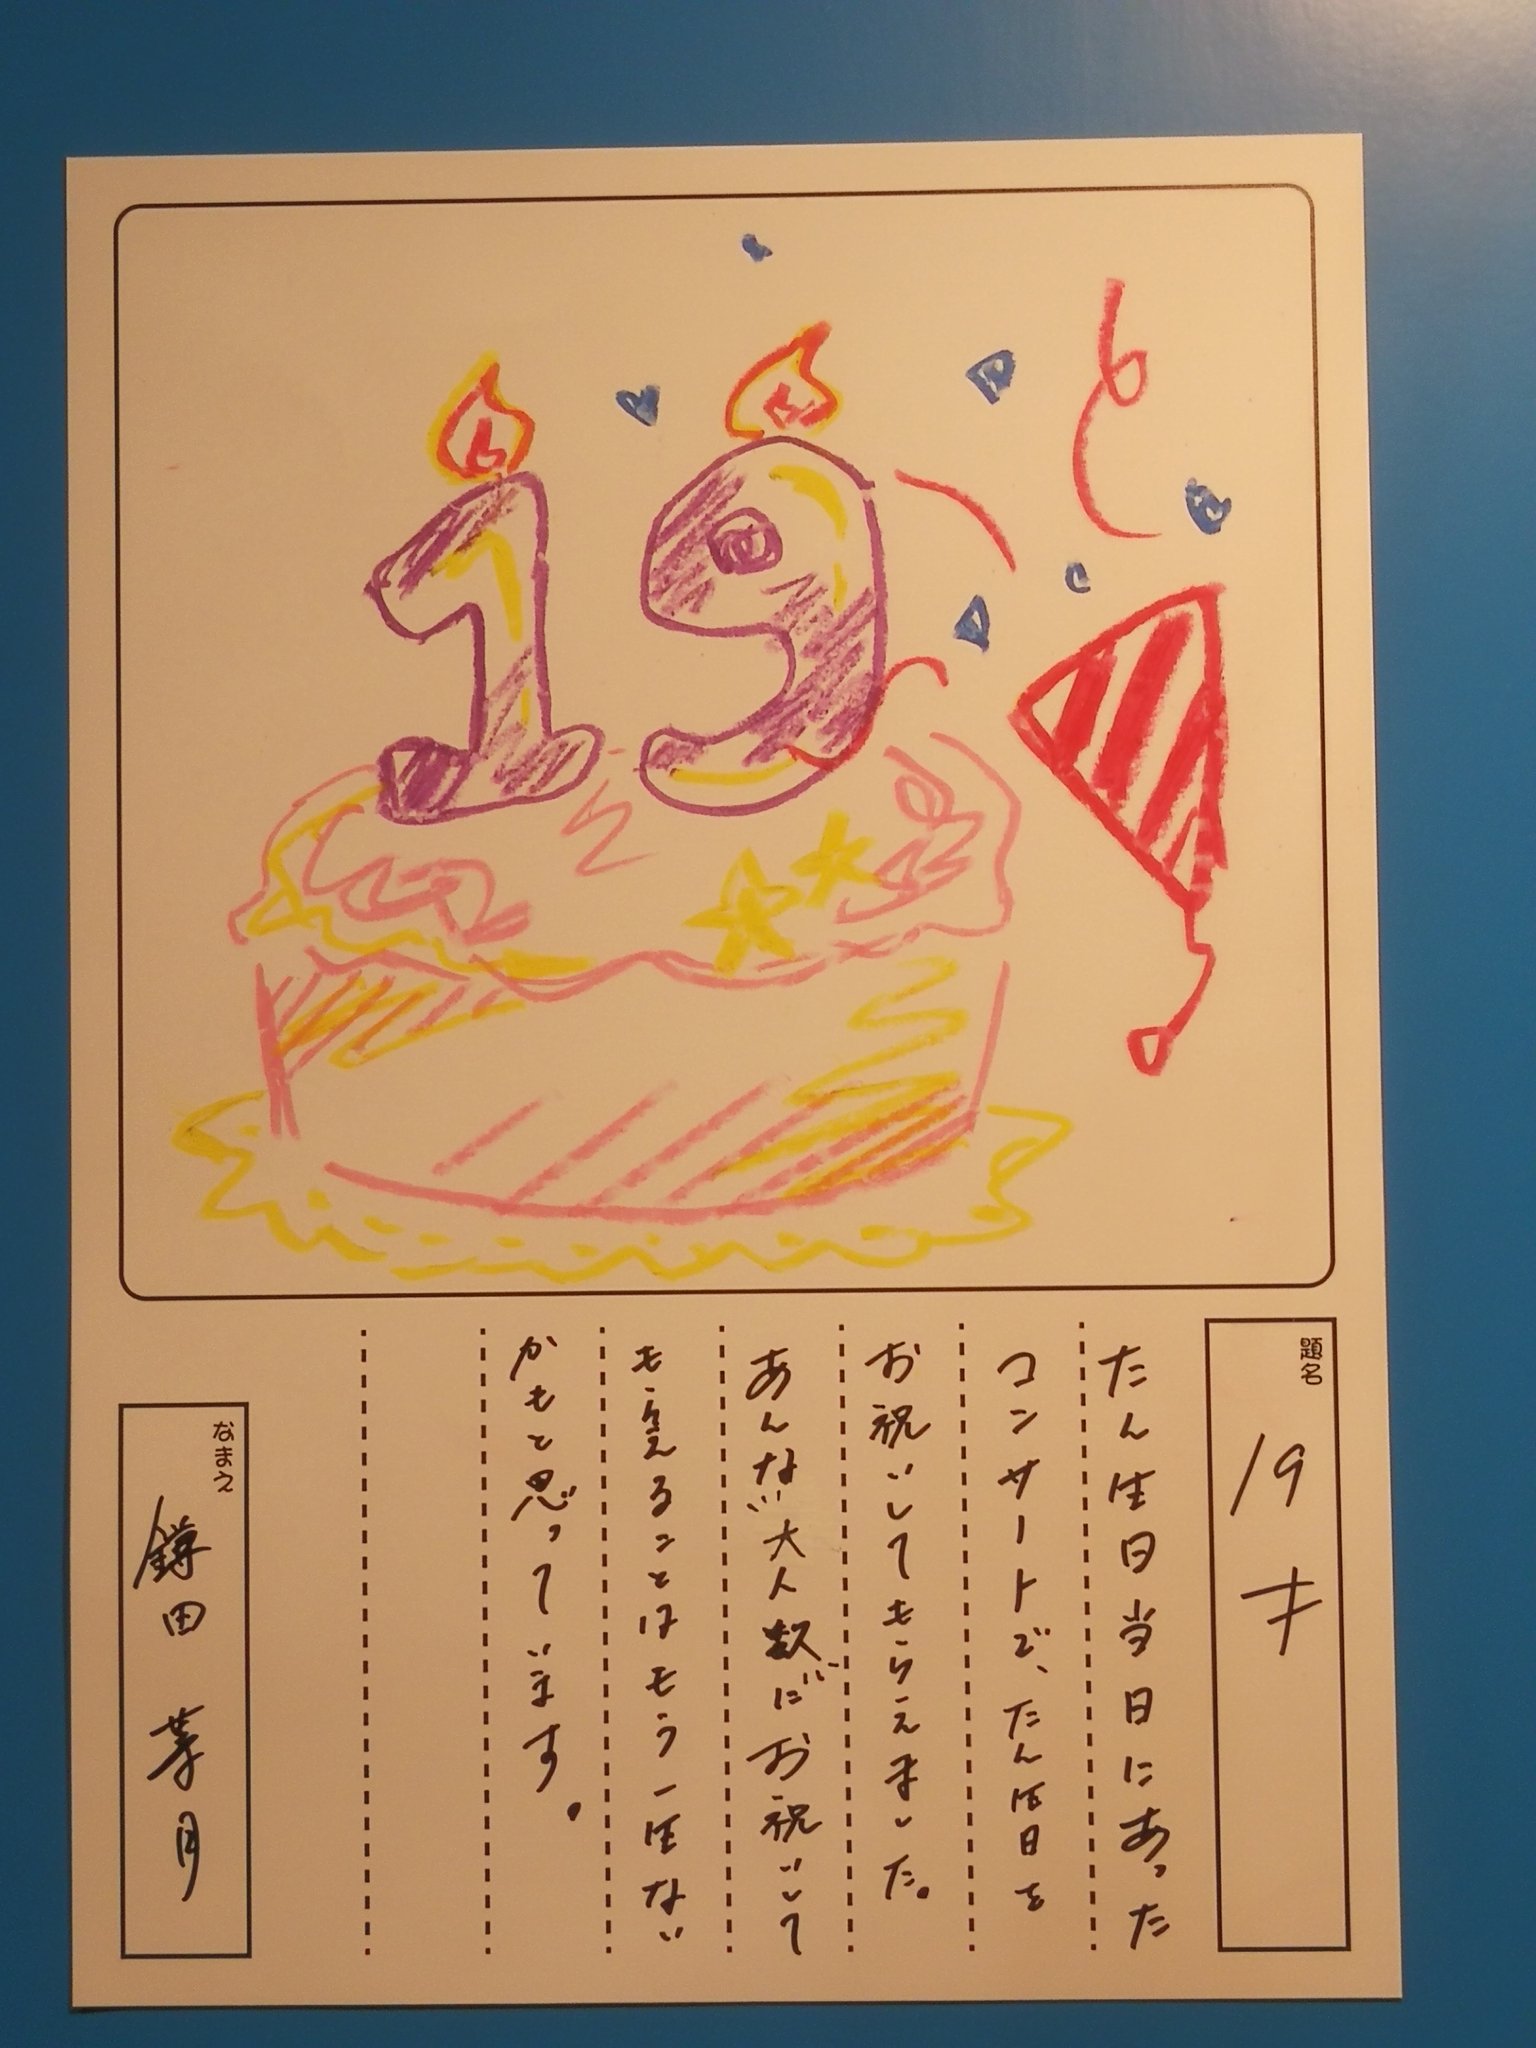 19
題名
19才
たん生日当日にあった
コンサートで、たん生日を
お祝いしてもらえました。
あんな大人数にお祝いして
もらえることはもう一生ない
かもと思っています。
なまえ
鎌田 菜月